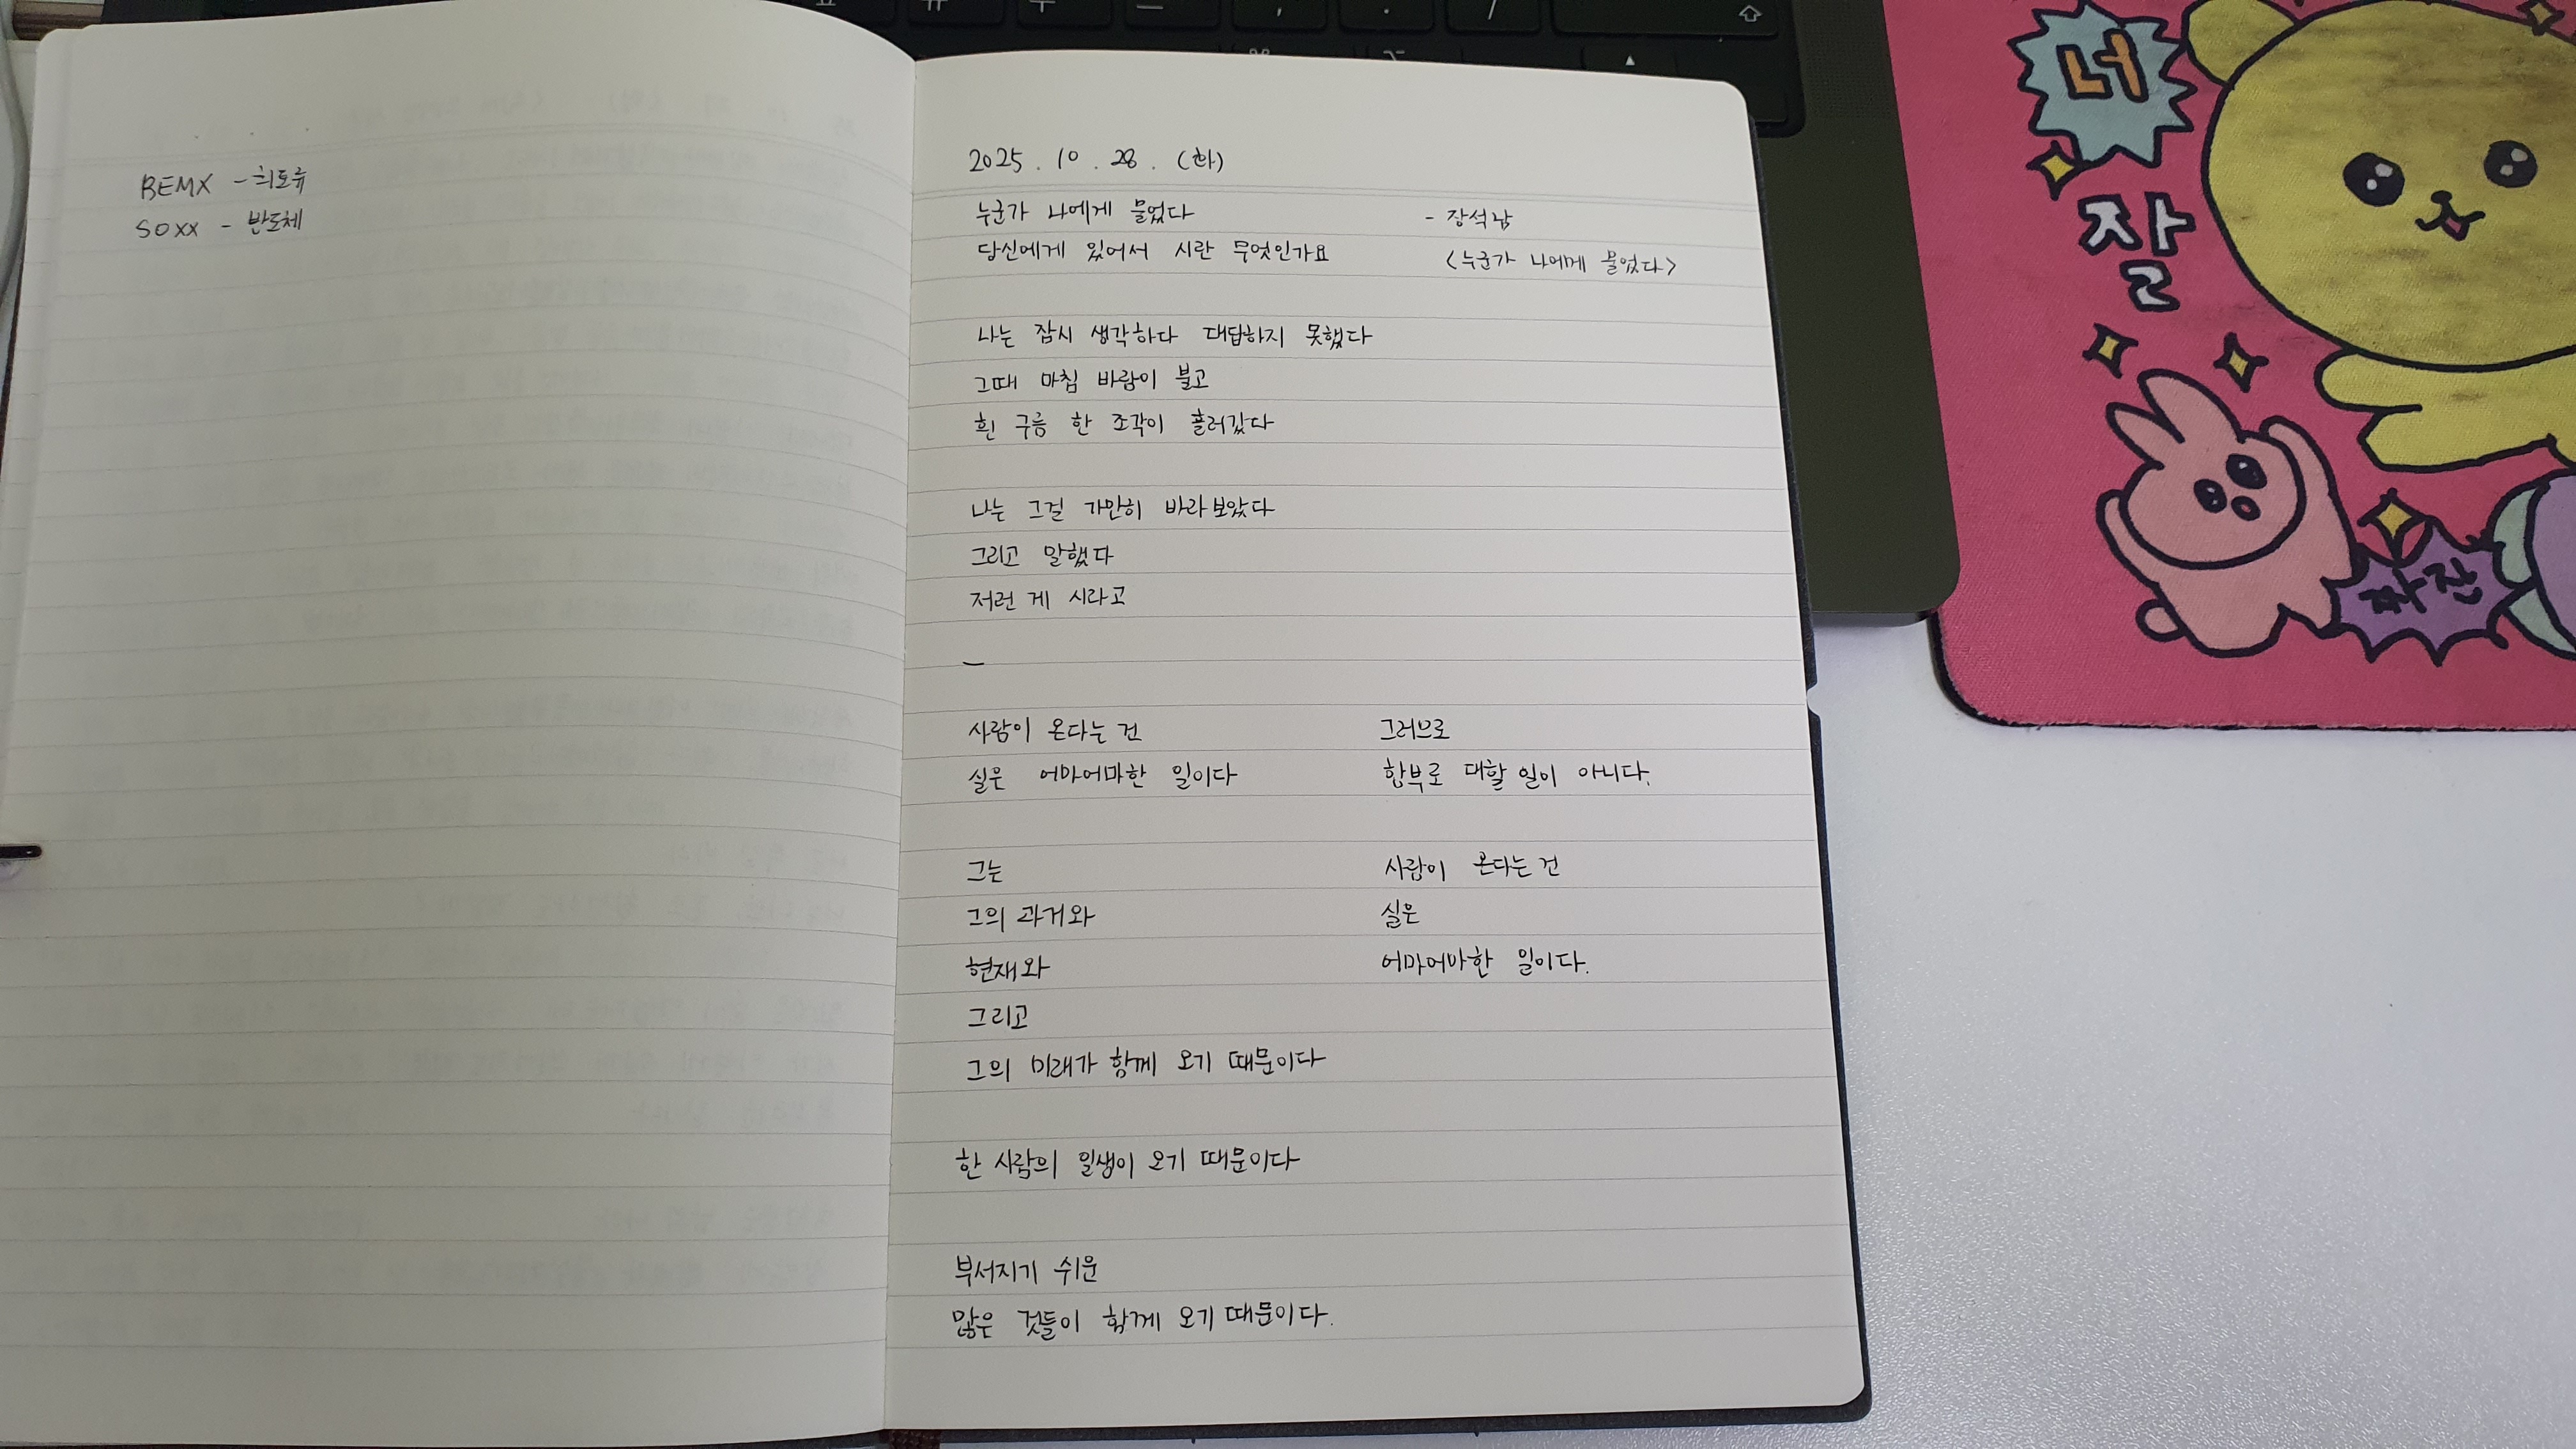 BEMX - 희토류
SOXX - 반도체
2025. 10. 28. (화)
누군가 나에게 물었다
- 장석남
당신에게 있어서 시란 무엇인가요
<누군가 나에게 물었다>
나는 잠시 생각하다 대답하지 못했다
그때 마침 바람이 불고
흰 구름 한 조각이 흘러갔다
나는 그걸 가만히 바라보았다
그리고 말했다
저런 게 시라고
–
사람이 온다는 건
실은 어마어마한 일이다
그는
그의 과거와
현재와
그리고
그의 미래가 함께 오기 때문이다
한 사람의 일생이 오기 때문이다
부서지기 쉬운
많은 것들이 함께 오기 때문이다.
그러므로
함부로 대할 일이 아니다.
사람이 온다는 건
실은
어마어마한 일이다.
너
잘
짜잔